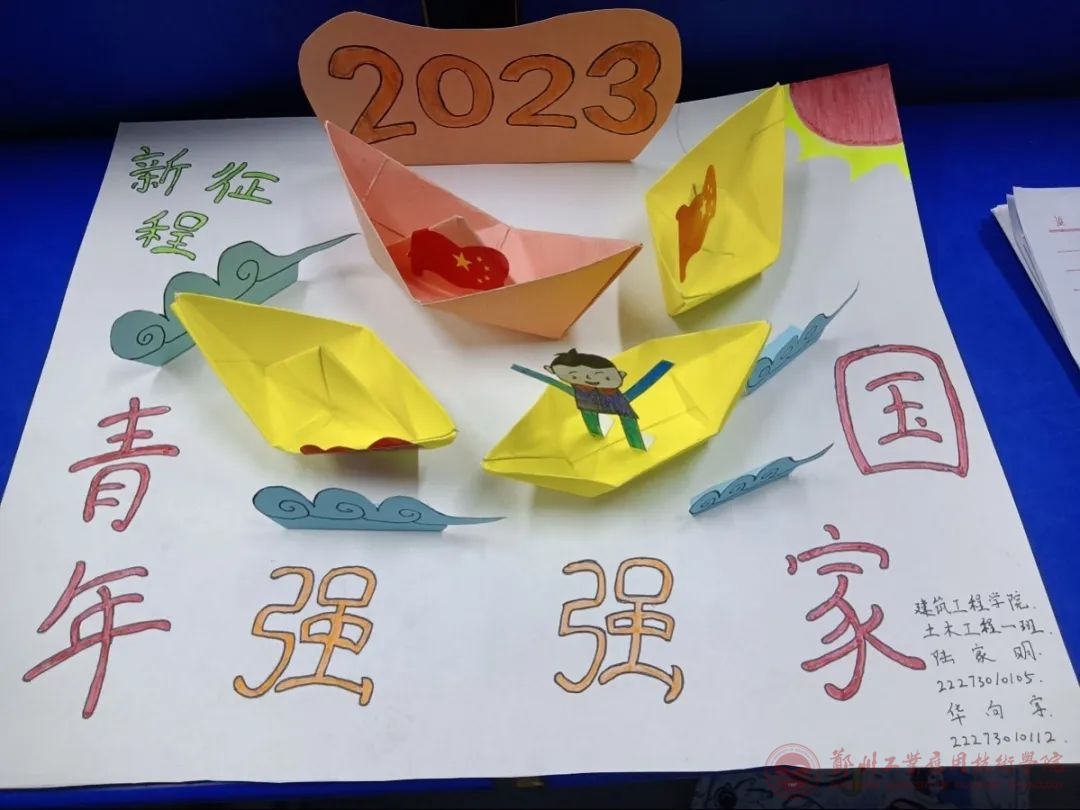 2023
新征
程
青年
强
强
国家
建筑工程学院.
土木工程一班.
陆家明.
22273010105.
华向宇.
22273010112.
郑州工业应用技术学院